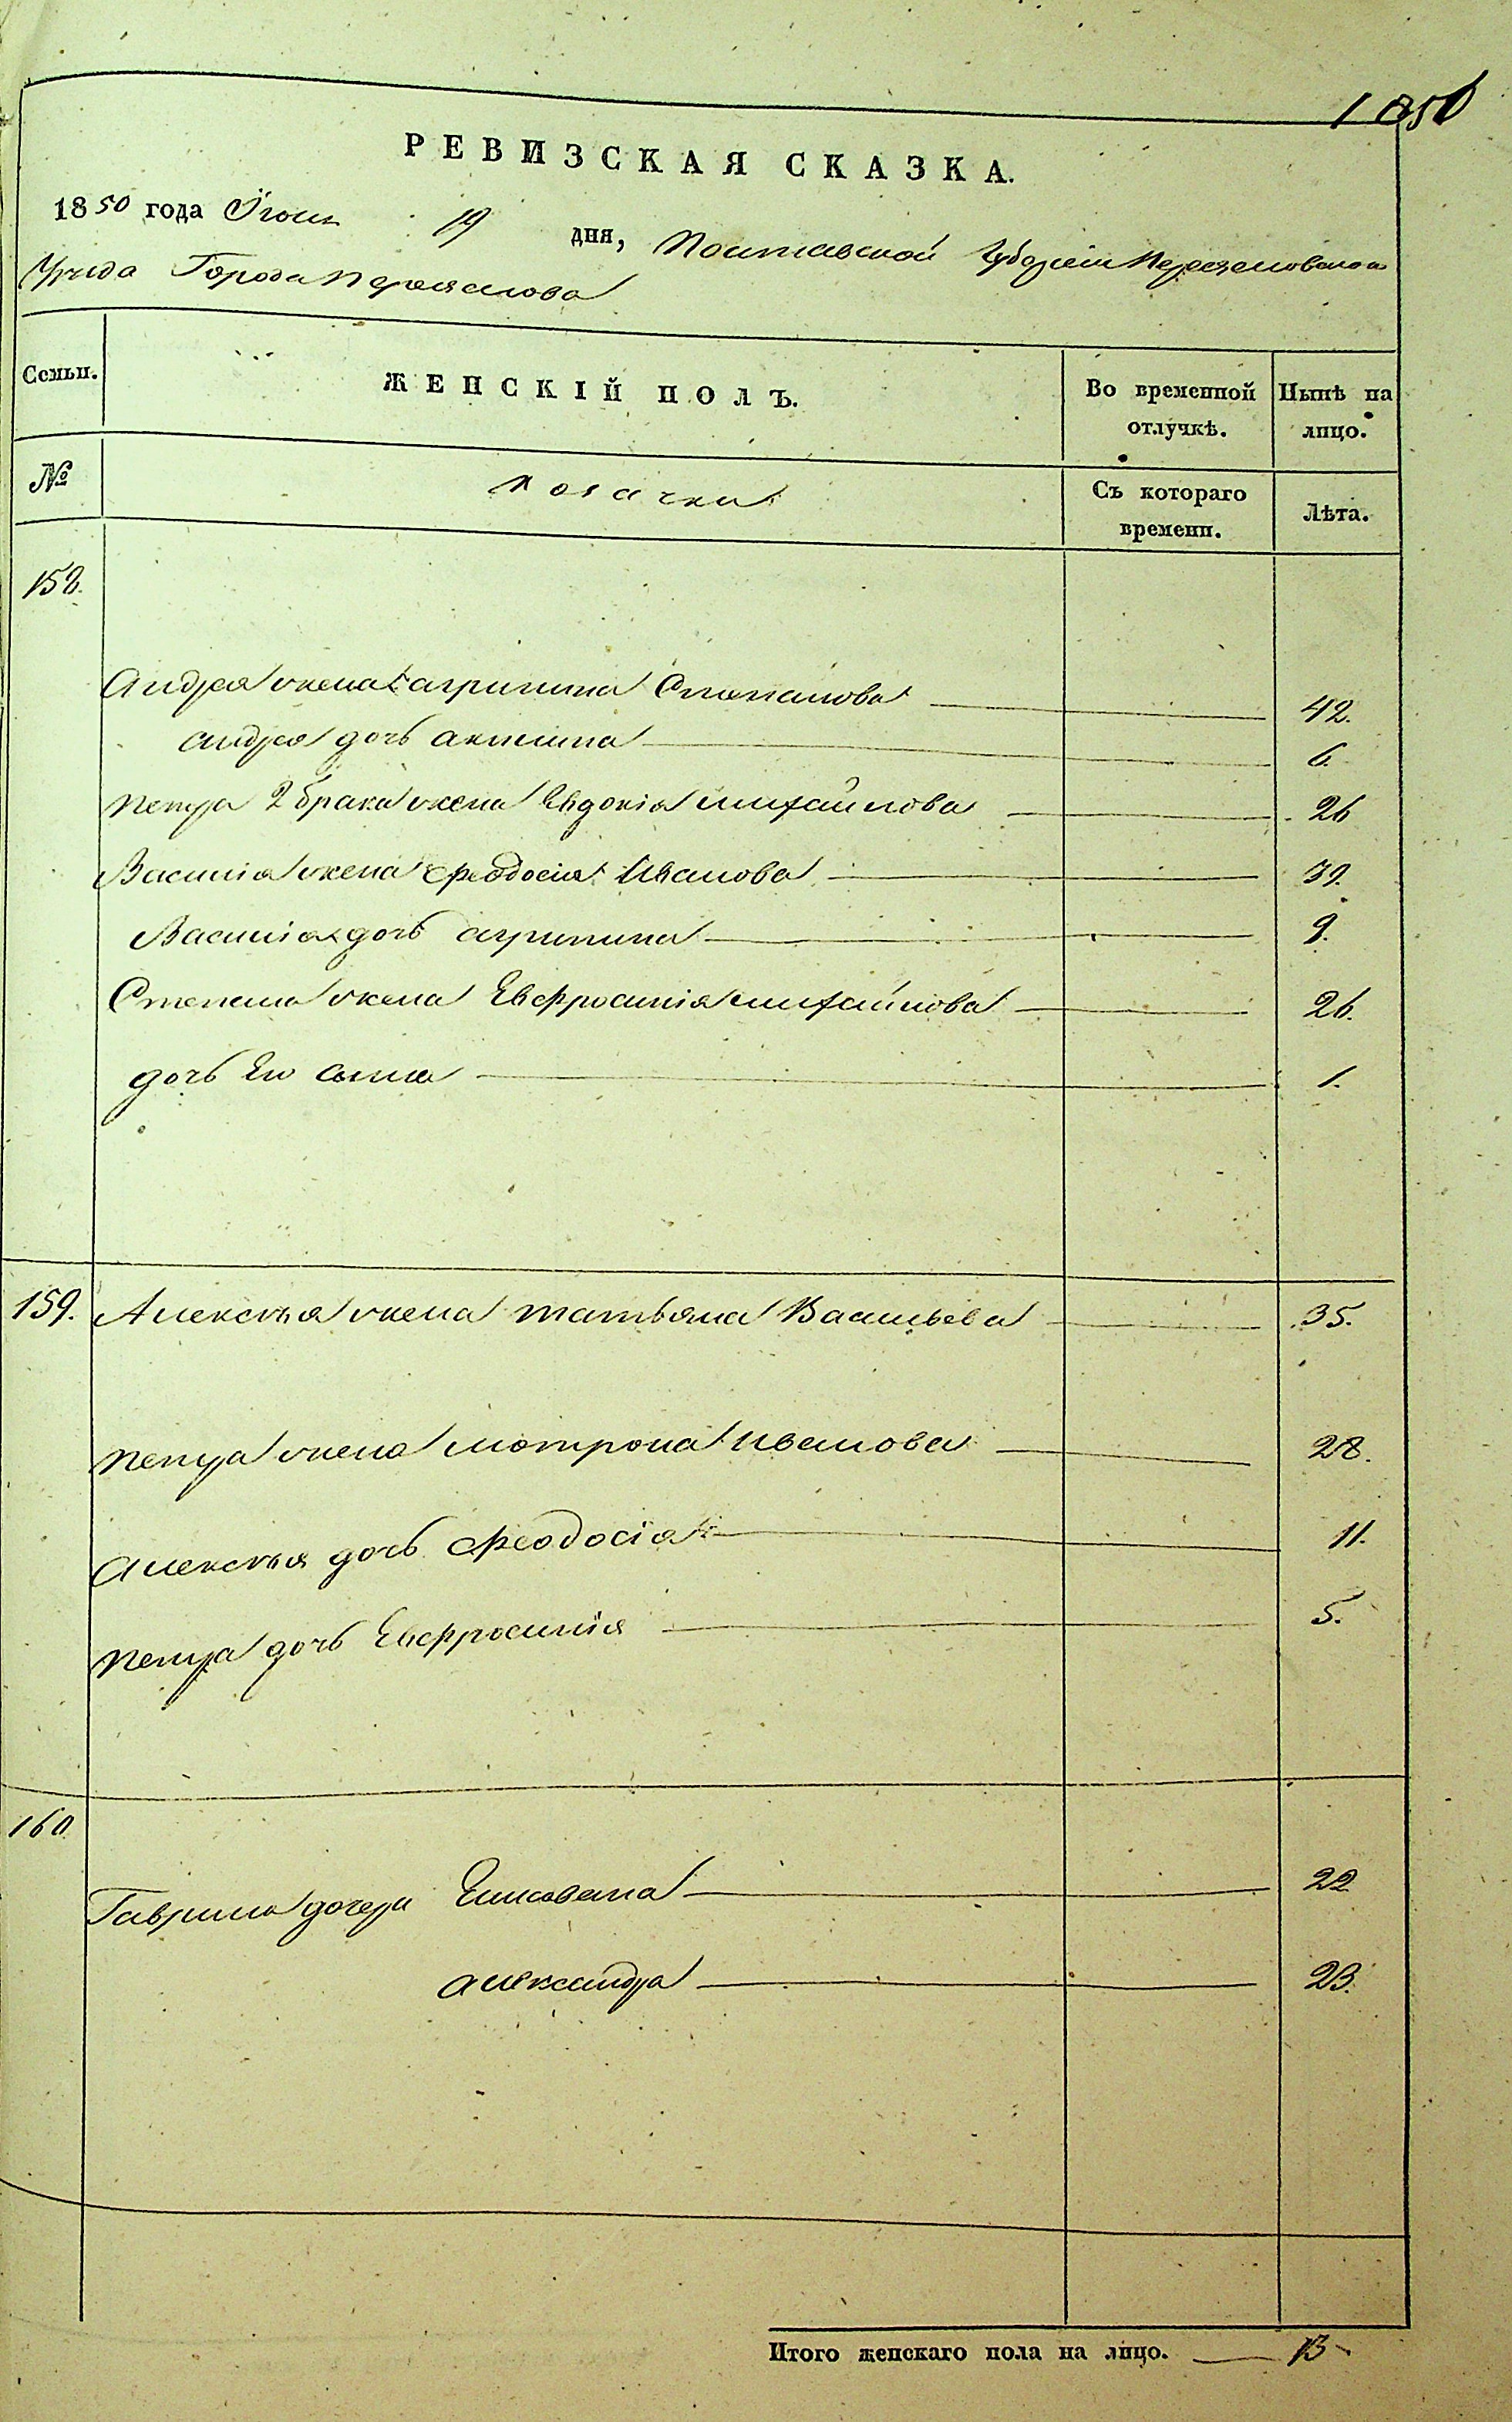 1050
РЕВИЗСКАЯ СКАЗКА.
1850 года Іюня 19 дня, Полтавской Губерніи Переяславского
Уезда Города Переяслова
Семьи. ЖЕНСКІЙ ПОЛЪ. Во временной отлучкѣ. Нынѣ на лицо.
№ козачки Съ котораго времени. Лѣта.
158.
Андрея жена агрипина Степанова 42.
андрея дочь акилина 6.
петра 2 брака жена Евдокія михайлова 26
Василія жена феодосія Иванова 39.
Василія дочь агрипина 9.
Степана жена Евфросинія михайлова 26.
дочь Его анна 1.
159. Алексѣя жена татьяна Васильева 35.
петра жена мотрона иванова 28.
алексѣя дочь феодосія 11.
петра дочь Евфросинія 5.
160
Гаврила дочери Елисавета 22
александра 23.
Итого женскаго пола на лицо. 13